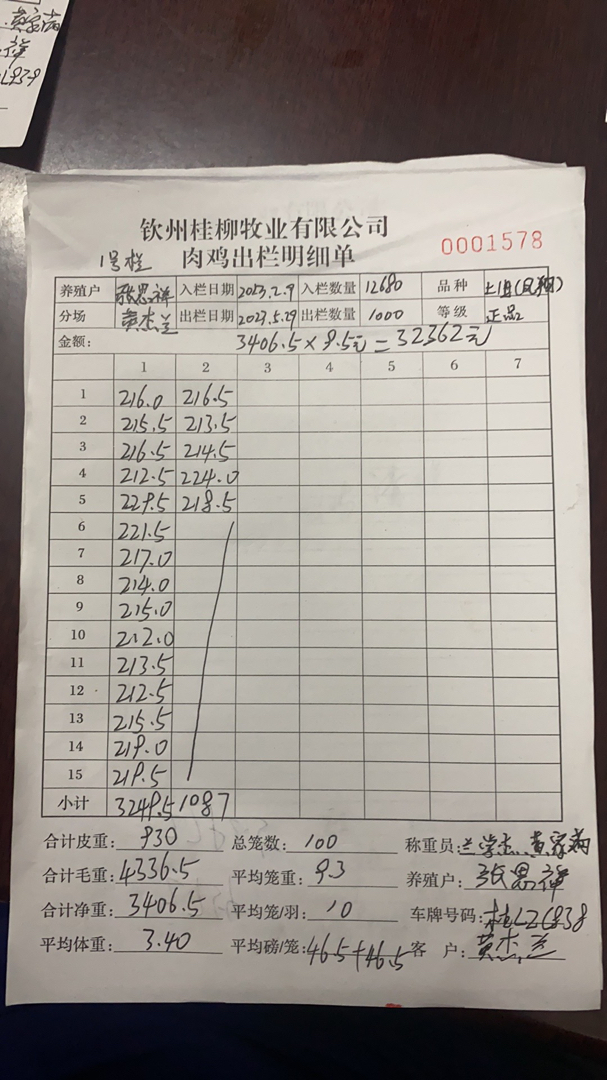 黄家南
祥
钦州桂柳牧业有限公司
1号栏 肉鸡出栏明细单 0001578
养殖户 张思祥 入栏日期 2023.2.9 入栏数量 12680 品种
分场 黄杰兰 出栏日期 2023.5.29 出栏数量 1000 等级 正品
金额: 3406.5×9.5元=32362元
1 2 3 4 5 6 7
1 216.0 216.5
2 215.5 213.5
3 216.5 214.5
4 212.5 224.0
5 229.5 218.5
6 221.5
7 217.0
8 214.0
9 215.0
10 212.0
11 213.5
12 212.5
13 215.5
14 219.0
15 219.5
小计 3249.5 1087
合计皮重: 930 总笼数: 100 称重员: 兰学杰 黄家南
合计毛重: 4336.5 平均笼重: 9.3 养殖户: 张思祥
合计净重: 3406.5 平均笼/羽: 10 车牌号码: 桂LZ6838
平均体重: 3.40 平均磅/笼: 46.5+46.5 客 户: 黄杰兰